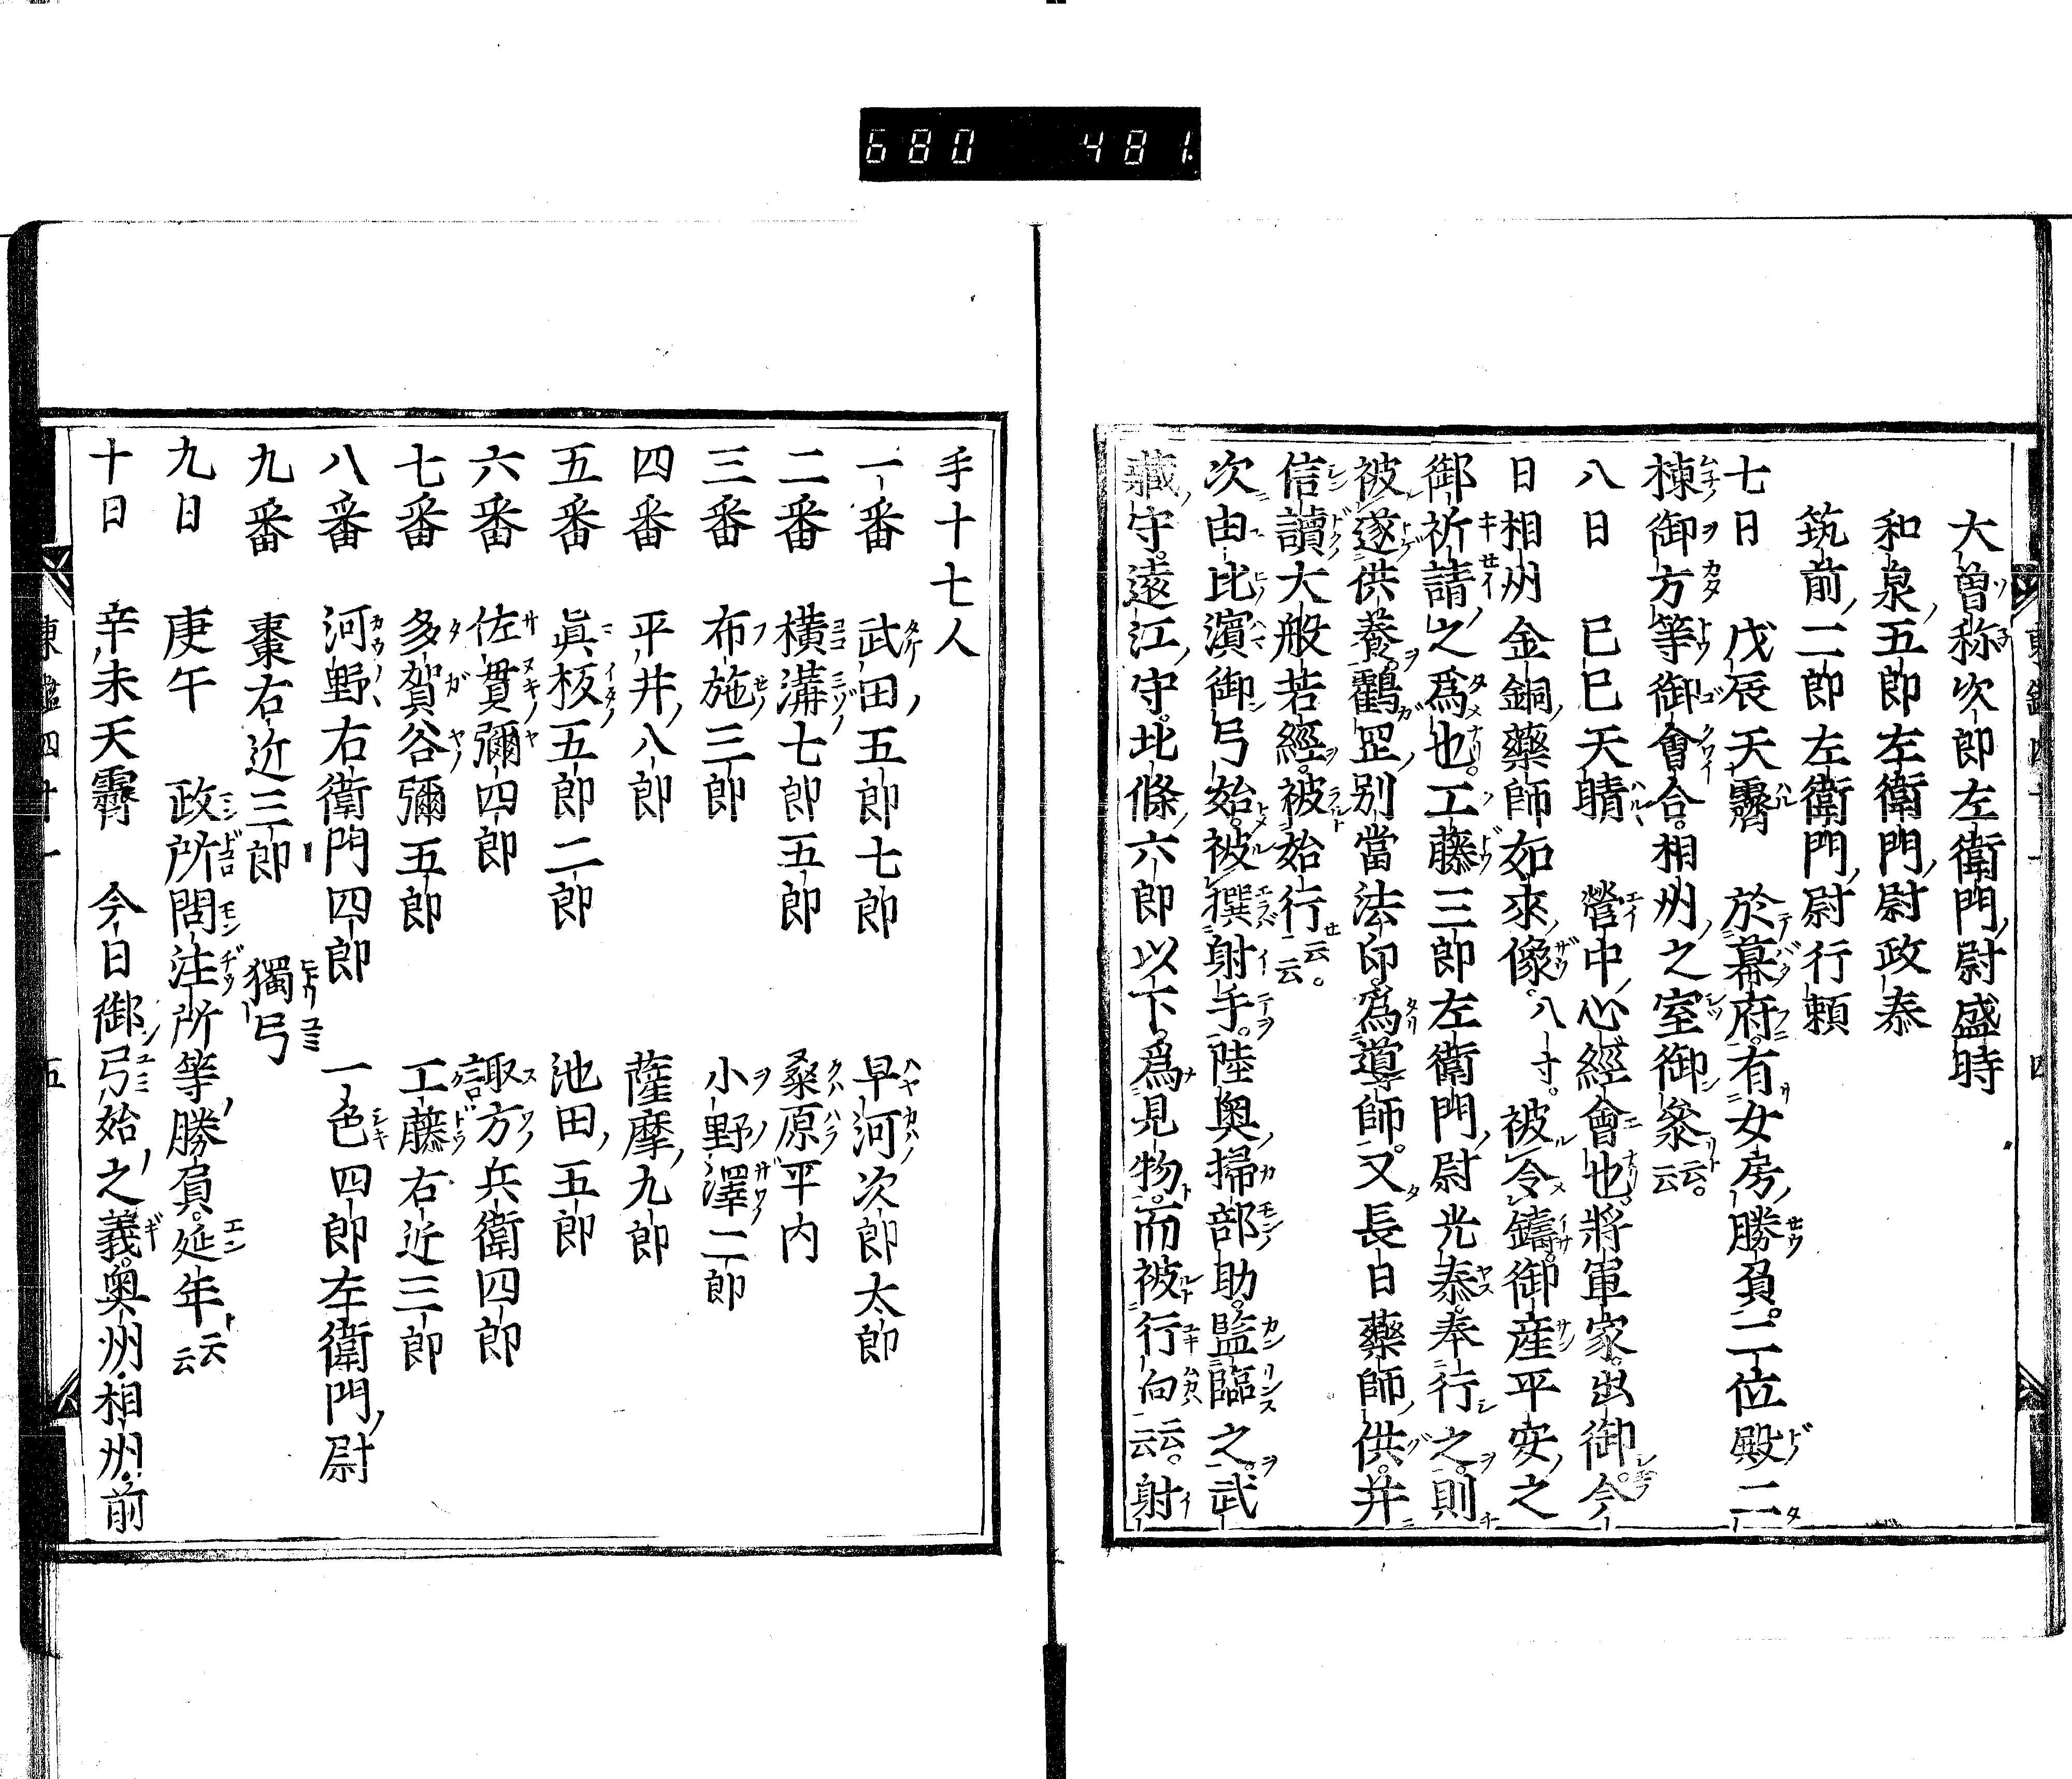 680 481.
大曽祢次郎左衛門尉盛時
和泉五郎左衛門尉政泰
筑前二郎左衛門尉行頼
七日 戊辰天霽 於幕府有女房勝負。二位殿二
棟御方等御會合。相州之室御参云云。
八日 巳巳天晴 營中心經會也。將軍家出御。今
日相州金銅藥師如來像。八寸。被令鑄。御産平安之
御祈請之爲也。工藤三郎左衛門尉光泰奉行之。則
被遂供養。靏罡別當法印爲導師。又長日藥師供。并
信讀大般若經。被始行云云。
次由比濱御弓始。被撰射手。陸奥掃部助。監臨之。武
藏守。遠江守。北條六郎以下。爲見物。而被行向云云。射
手十七人
一番 武田五郎七郎 早河次郎太郎
二番 横溝七郎五郎 桑原平内
三番 布施三郎 小野澤二郎
四番 平井八郎 薩摩九郎
五番 眞板五郎二郎 池田五郎
六番 佐貫彌四郎 諏方兵衛四郎
七番 多賀谷彌五郎 工藤右近三郎
八番 河野右衛門四郎 一色四郎左衛門尉
九番 棗右近三郎 獨弓
九日 庚午 政所問注所等勝負。延年云云
十日 辛未天霽 今日御弓始之義。奥州相州。前
東鑑四十一 四
東鑑四十一 五